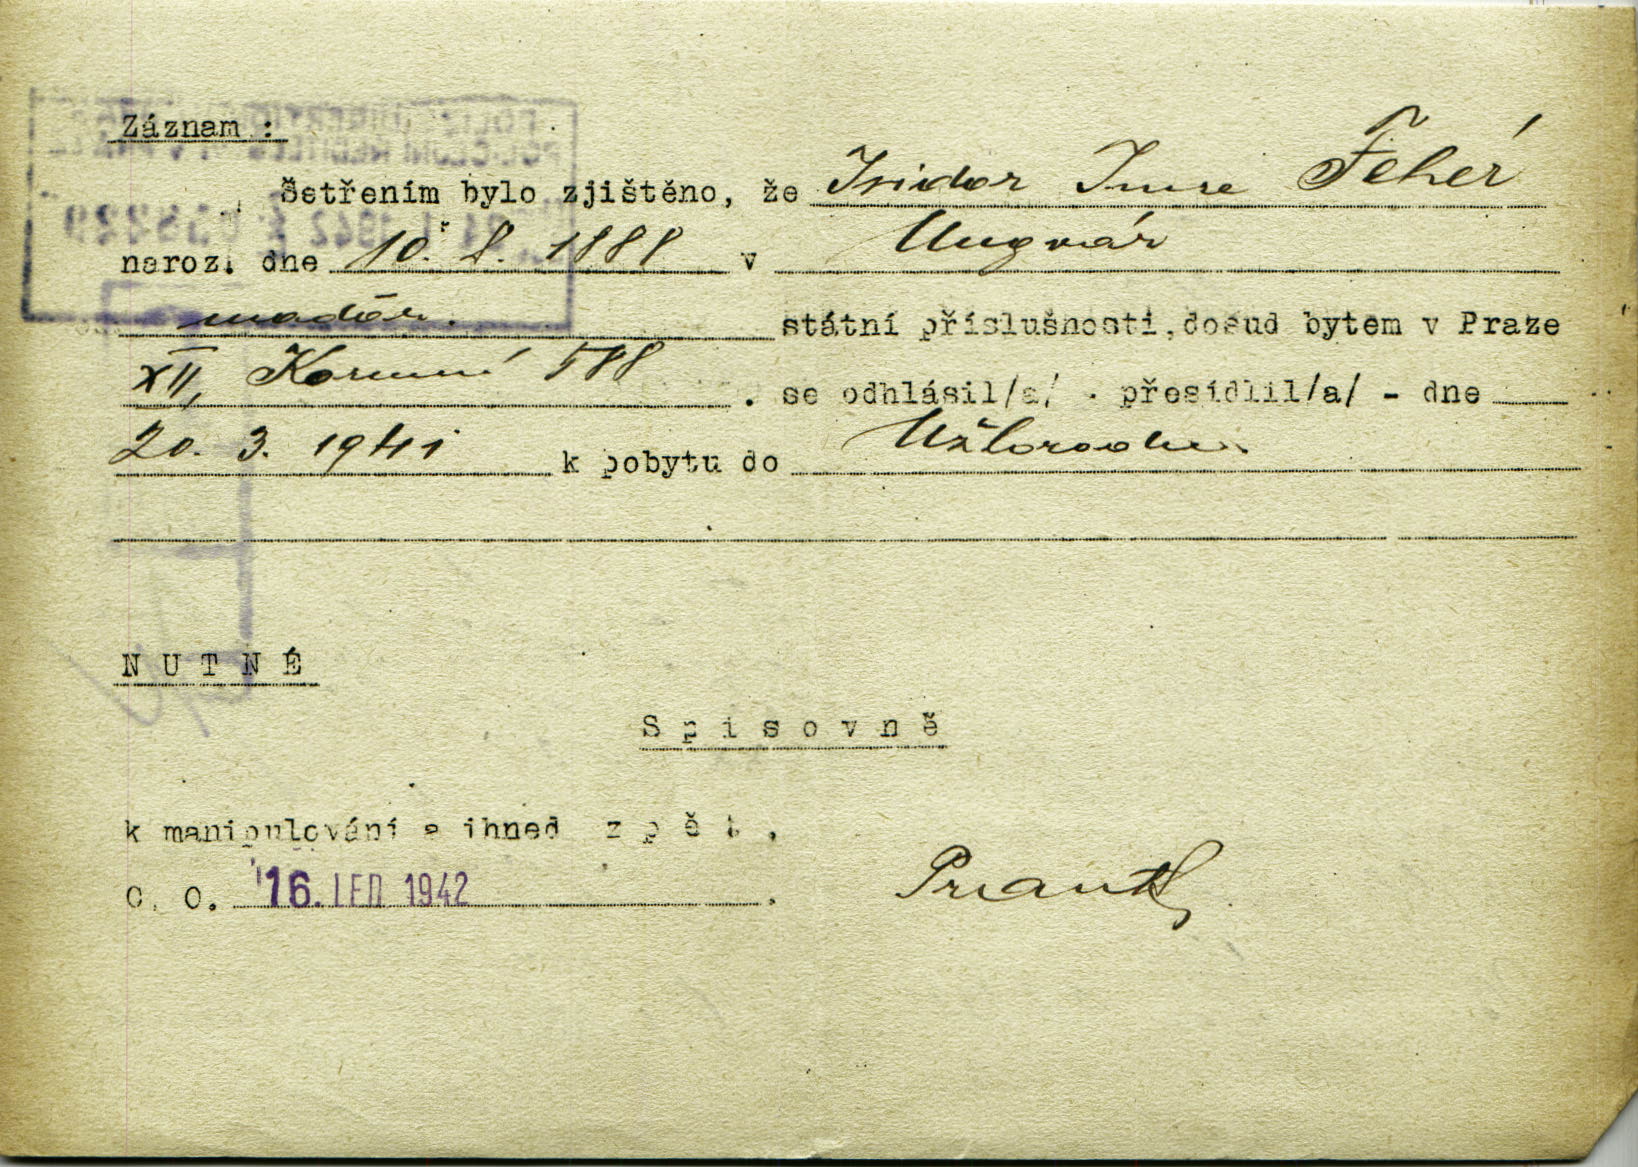 Záznam :
Šetřením bylo zjištěno, že Isidor Imre Fehér
naroz. dne 10. 8. 1888 v Ungvár
maďar. státní příslušnosti, dosud bytem v Praze
XII, Korunní 588 . se odhlásil/a/ - přesídlil/a/ - dne
20. 3. 1941 k pobytu do Užhorodu.
NUTNÉ
Spisovně
k manipulování a ihned zpět.
C. O. 16. LED 1942 .